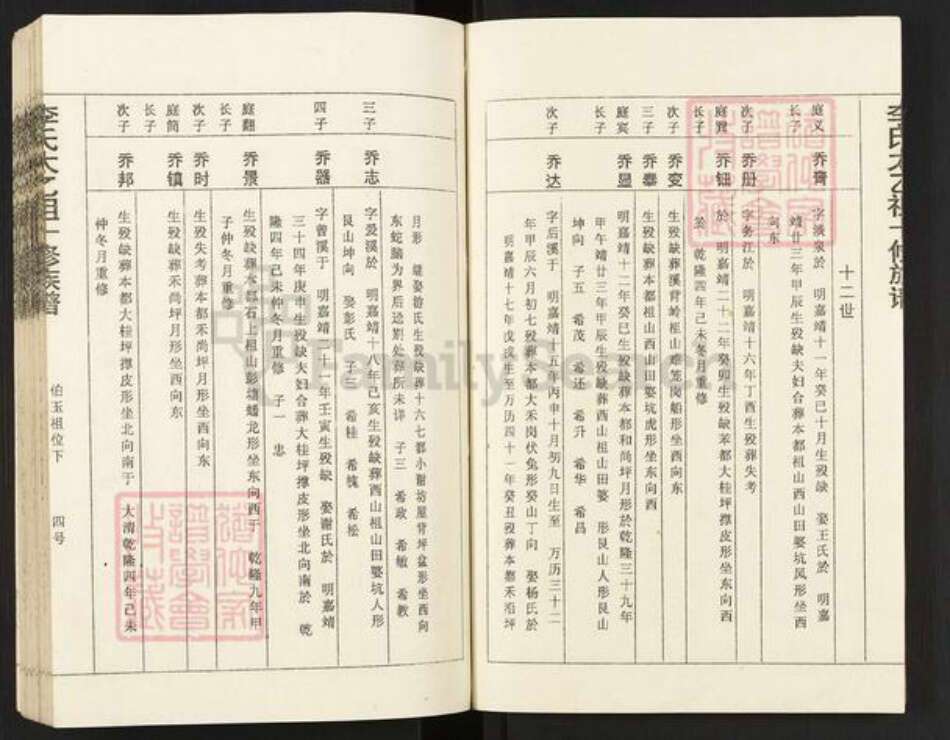 十二世
庭义 长子 乔膏
字淡泉於 明嘉靖十一年癸巳十月生殁缺 娶王氏於 明嘉
靖廿三年甲辰生殁缺夫妇合葬本都祖山西山田婆坑凤形坐西
向东
次子 乔册
字务江於 明嘉靖十六年丁酉生殁葬失考
长子 乔钿
於 明嘉靖二十二年癸卯生殁缺葬本都大桂坪撑皮形坐东向西
乾隆四年己未冬月重修
次子 乔变
生殁缺葬溪背岭祖山难笼岗船形坐西向东
三子 乔泰
生殁缺葬本都祖山西山田婆坑虎形坐东向西
庭宾 长子 乔显
明嘉靖十二年癸巳生殁缺葬本都和尚坪月形於乾隆三十九年
甲午 靖廿三年甲辰生殁缺葬西山祖山田婆 形艮山人形艮山
坤向 子五 希茂 希还 希升 希华 希昌
次子 乔达
字后溪于 明嘉靖十五年丙申十月初九日生至 万历三十二
年甲辰六月初七殁葬本都大禾岗伏兔形癸山丁向 娶杨氏於
明嘉靖十七年戊戌生至万历四十一年癸丑殁葬本都禾沿坪
月形 继娶游氏生殁缺葬十六都小谢坊屋背坪盆形坐西向
东蛇脑为界后迳割处葬所未详 子三 希政 希敏 希教
三子 乔志
字爱溪於 明嘉靖十八年己亥生殁缺葬西山祖山田婆坑人形
艮山坤向 娶彭氏 子三 希桂 希槐 希松
四子 乔器
字曾溪于 明嘉靖二十一年壬寅生殁缺 娶谢氏於 明嘉靖
三十四年庚申生殁缺夫妇合葬大桂坪撑皮形坐北向南於 乾
隆四年己未仲冬月重修 子一 忠
庭翻 长子 乔景
生殁缺葬本都石上祖山彭塘蟠龙形坐东向西于 乾隆九年甲
子仲冬月重修
次子 乔时
生殁失考葬本都禾尚坪月形坐西向东
庭简 长子 乔镇
生殁缺葬禾尚坪月形坐西向东
次子 乔邦
生殁缺葬本都大桂坪撑皮形坐北向南于 大清乾隆四年己未
仲冬月重修
伯玉祖位下
四号
FamilySearch